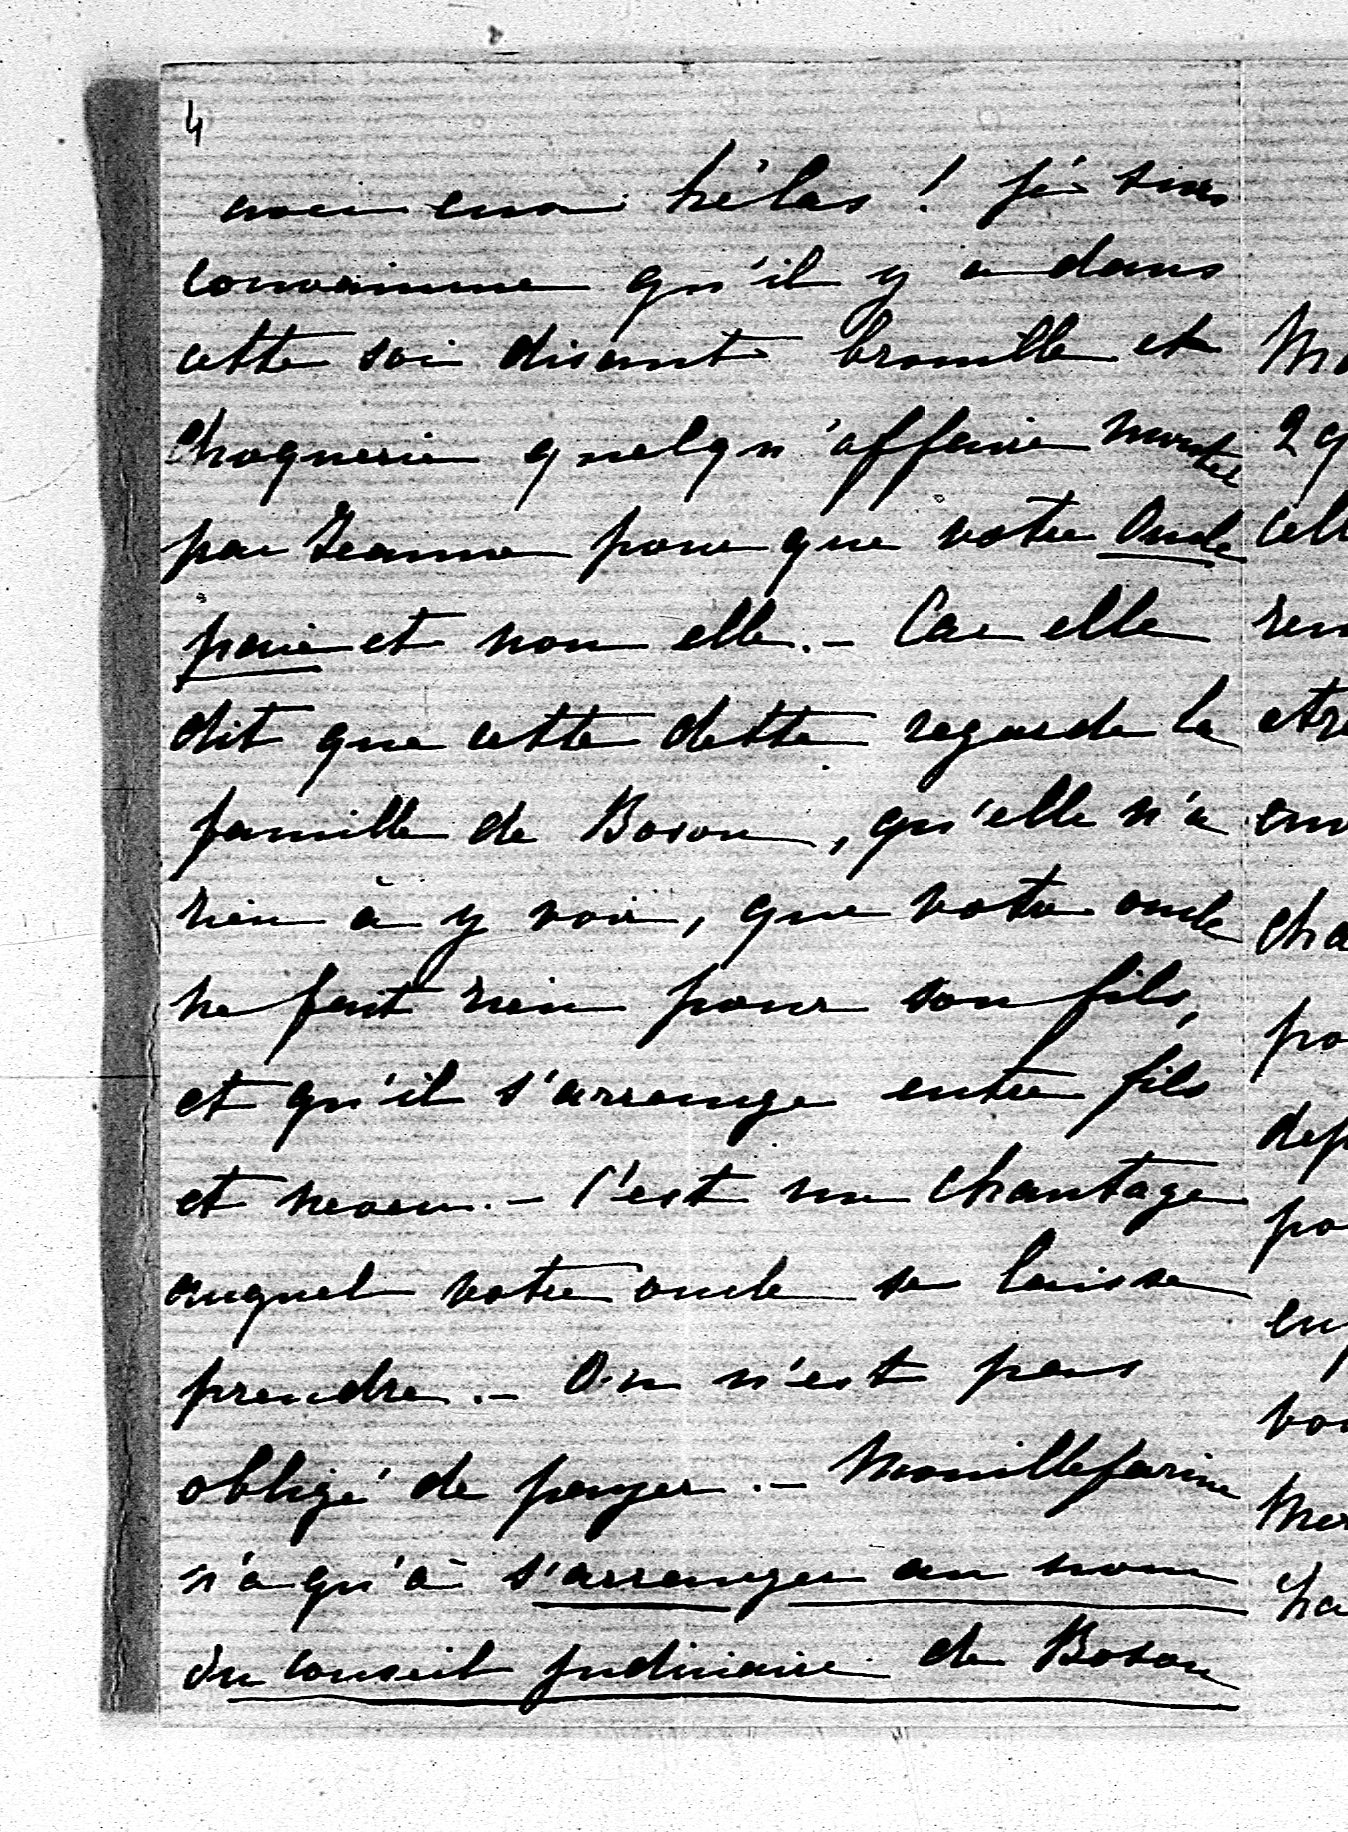 4
hélas ! je suis
convaincue qu'il y a dans
cette soi disant brouille et
quelqu'affaire montée
par Jeanne pour que votre Oncle
paie et non elle. – Car elle
dit que cette dette regarde la
famille de Boson, qu'elle n'a
rien à y voir, que votre oncle
ne fait rien pour son fils,
et qu'il s'arrange entre fils
et neveu. – C'est un chantage
auquel votre oncle se laisse
prendre. – On n'est pas
obligé de payer. – Mouillefarine
n'a qu'à s'arranger au nom
du conseil judiciaire de Boson